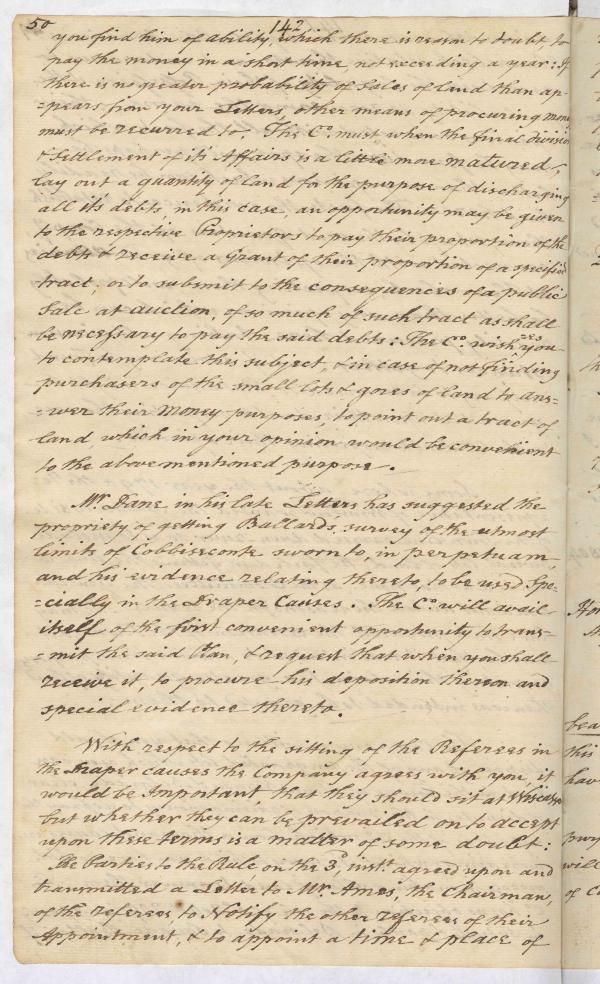 50
142
you find him of ability, which there is reason to doubt, to
pay the money in a short time not exceeding a year: If
there is no greater probability of Sales of land than ap-
=pears from your Letters, other means of procuring money
must be recurred to. The Co. must when the final division
& Settlement of it's Affairs is a little more matured,
lay out a quantity of land for the purpose of discharging
all it's debts, in this case, an opportunity may be given
to the respective Proprietors to pay their proportion of the
debts & receive a Grant of their proportion of a specified
tract, or to submit to the consequences of a public
Sale at auction, of so much of such tract as shall
be necessary to pay the said debts: The Co. wishes you
to contemplate this subject, & in case of not finding
purchasers of the small lots & gores of land to ans=
=wer their Money purposes, to point out a tract of
land, which in your opinion would be convenient
to the abovementioned purpose.
Mr. Dane in his late Letters has suggested the
propriety of getting Ballards survey of the utmost
limits of Cobbiseconte sworn to, in perpetuam,
and his evidence relating thereto, to be used Spe=
=cially in the Draper Causes. The Co. will avail
itself of the first convenient opportunity to trans=
=mit the said Plan, & request that when you shall
receive it, to procure his deposition thereon and
special evidence thereto.
With respect to the sitting of the Referees in
the Draper causes the Company agrees with you, it
would be Important, that they should sit at Wiscasset
but whether they can be prevailed on to accept
upon these terms is a matter of some doubt:
The Parties to the Rule on the 3d. instt. agreed upon and
transmitted a Letter to Mr. Ames, the Chairman,
of the referees, to Notify the other referees of their
Appointment, & to appoint a time & place of
bea
this
hav
will
of C